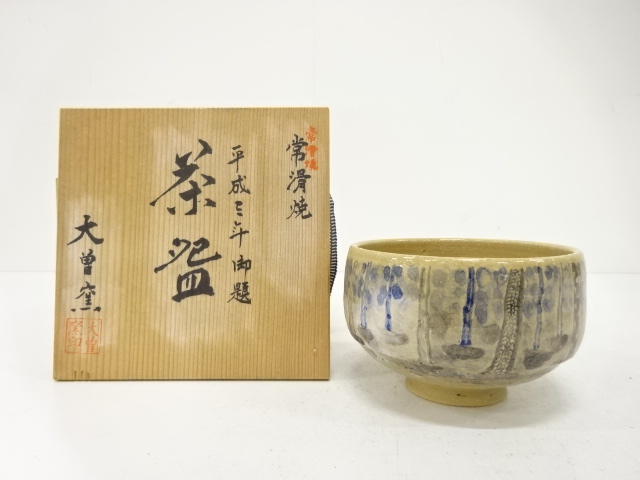 常滑焼
常滑焼
平成三年御題
茶盌
大曽窯